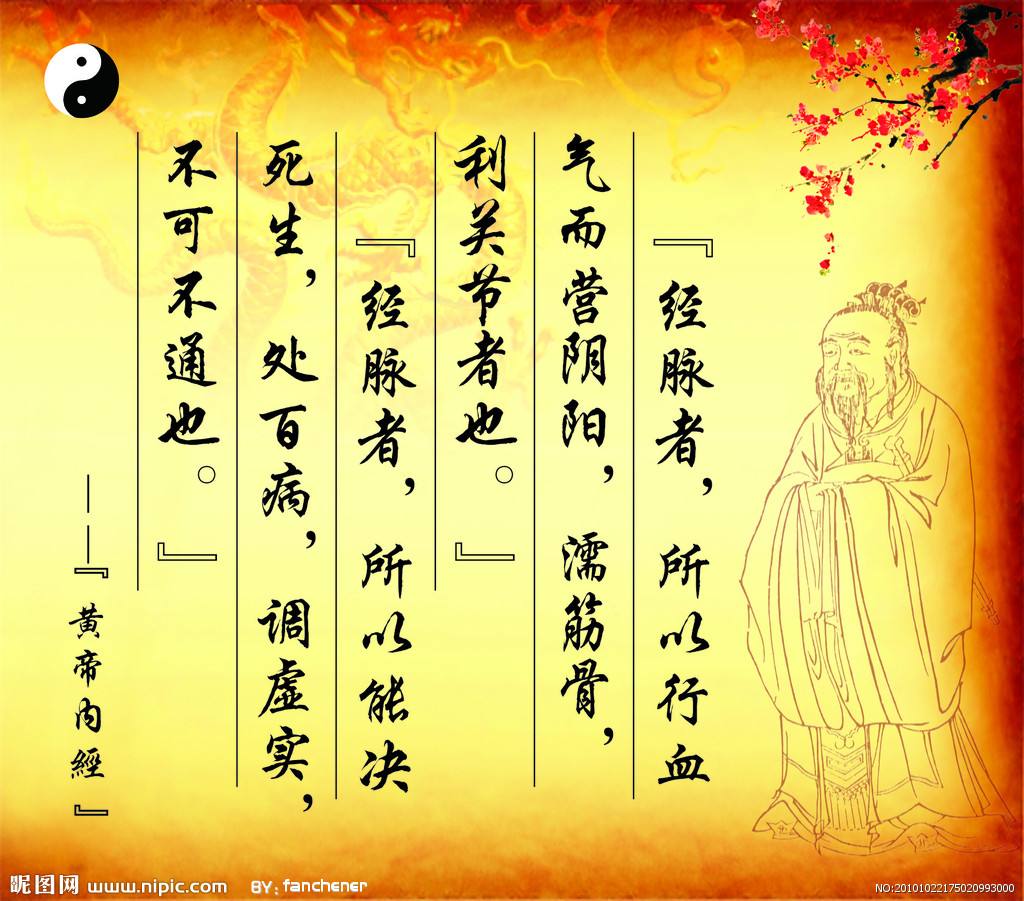 『经脉者，所以行血
气而营阴阳，濡筋骨，
利关节者也。』
『经脉者，所以能决
死生，处百病，调虚实，
不可不通也。』
——『黄帝内經』
昵图网 www.nipic.com BY: fanchener
NO:20101022175020993000